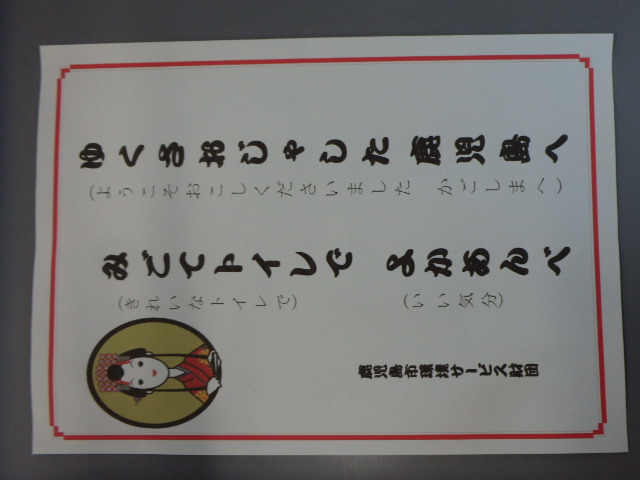 ゆくさおじゃした鹿児島へ
(ようこそおこしくださいました かごしまへ)
みごてトイレで よかあんべ
(きれいなトイレで) (いい気分)
鹿児島市環境サービス財団